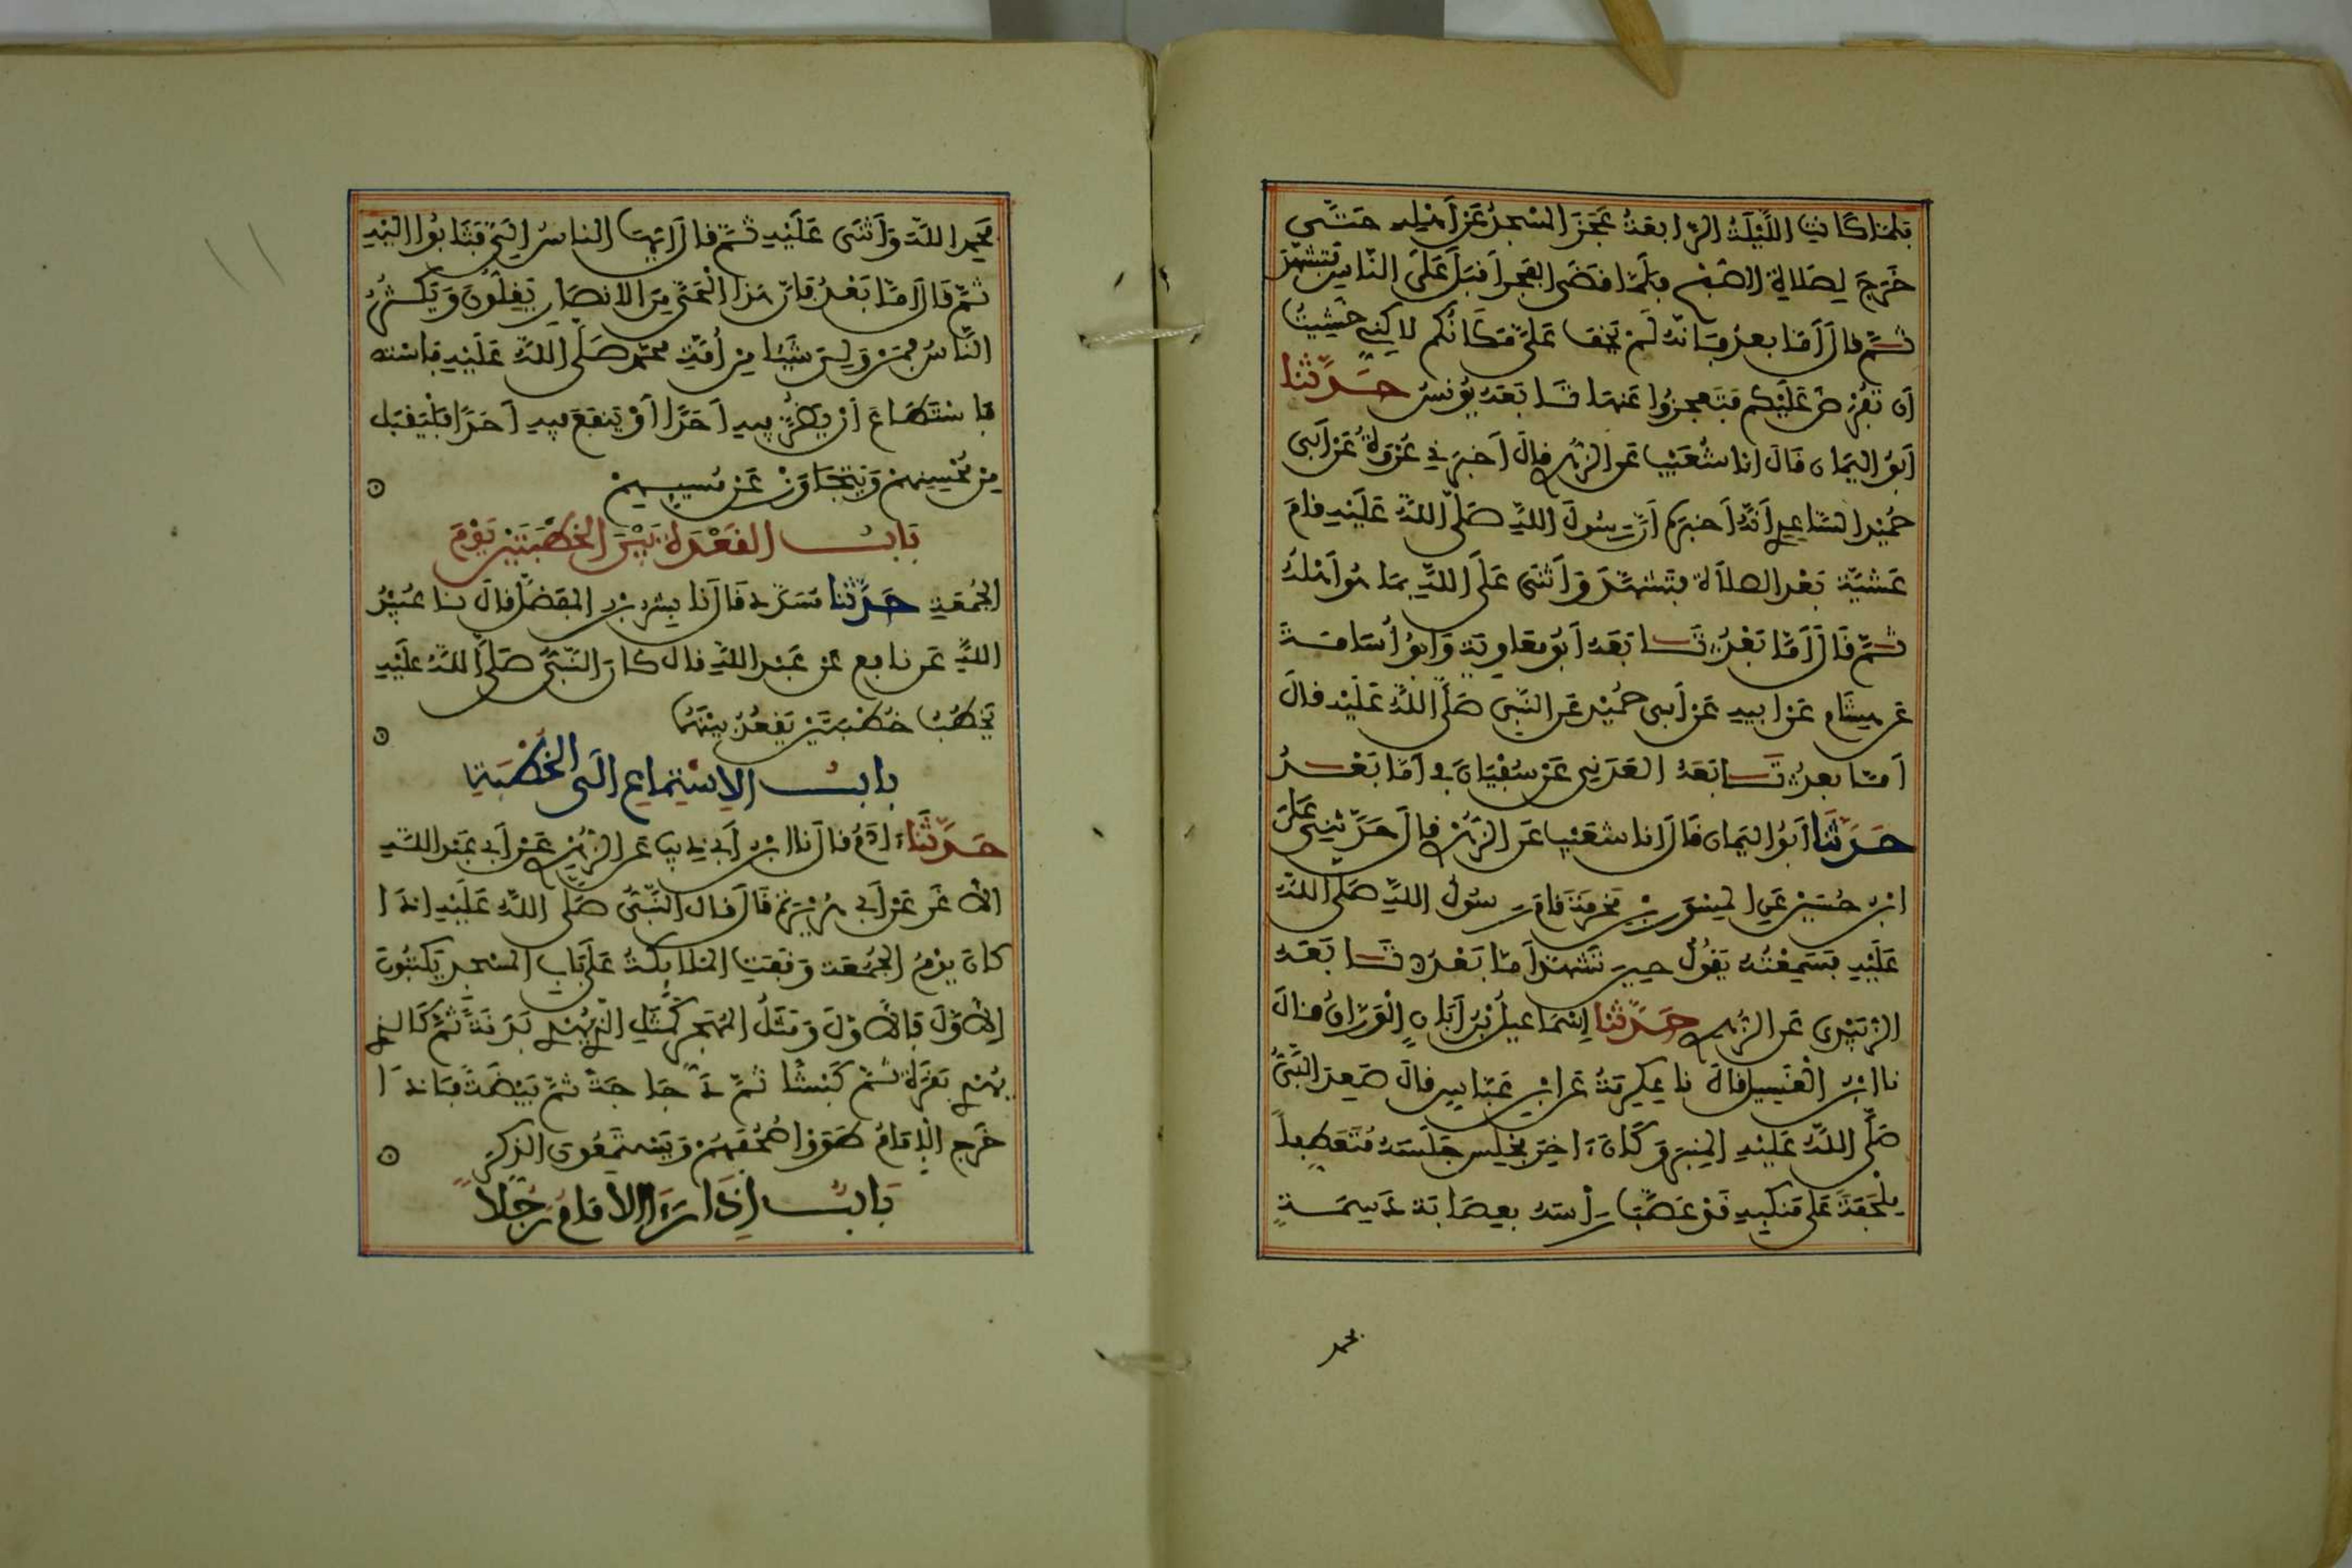 فلما كانت الليلة الرابعة عجز المسجد عن أهله حتى
خرج لصلاة الصبح فلما قضى الفجر أقبل على الناس فتشهد
ثم قال أما بعد فإنه لم يخف علي مكانكم لاكني خشيت
أن تفرض عليكم فتعجزوا عنها تابعه يونس حدثنا
أبو اليمان قال انا شعيب عن الزهري قال أخبرني عروة عن أبي
حميد الساعدي أنه أخبركم أن رسول الله صلى الله عليه قام
عشية بعد الصلاة فتشهد وأثنى على الله بما هو أهله
ثم قال أما بعد تابعه أبو معاوية وأبو أسامة
عن هشام عن ابيه عن أبي حميد عن النبي صلى الله عليه قال
أما بعد تابعه العدني عن سفيان في أما بعد
حدثنا أبو اليمان قال انا شعيب عن الزهري قال حدثني علي
ابن حسين عن المسور بن مخرمة قام رسول الله صلى الله
عليه فسمعته يقول حين تشهد أما بعد تابعه
الزبيدي عن الزهري حدثنا إسماعيل بن أبان الوران قال
نا ابن الغسيل قال نا عكرمة عن ابن عباس قال صعد النبي
صلى الله عليه المنبر وكان ءاخر مجلس جلسه متعطفا
ملحفة على منكبيه قد عصب رأسه بعصابة دسمة
فحمد
فحمد الله وأثنى عليه ثم قال أيها الناس إلي فثابوا اليه
ثم قال أما بعد فإن هذا الحي من الانصار يقلون ويكثر
الناس فمن ولي شيئا من أمة محمد صلى الله عليه فاسته
فاستطاع أن يضر فيه أحدا أو ينفع فيه أحدا فليقبل
من محسنهم ويتجاوز عن مسيهم
باب القعدة بين الخطبتين يوم
الجمعة حدثنا مسدد قال نا بشر بن المفضل قال نا عبيد
الله عن نافع عن عبد الله قال كان النبي صلى الله عليه
يخطب خطبتين يقعد بينهما
باب الاستماع الى الخطبة
حدثنا ءادم قال نا ابن أبي ذيب عن الزهري عن أبي عبد الله
الأغر عن أبي هريرة قال قال النبي صلى الله عليه إذا
كان يوم الجمعة وقفت الملايكة على باب المسجد يكتبون
الأول فالأول ومثل المهجر كمثل الذي يهدي بدنة ثم كالذي
يهدي بقرة ثم كبشا ثم دجاجة ثم بيضة فإذا
خرج الإمام طووا صحفهم ويستمعون الذكر
باب إذا رءا الامام رجلا